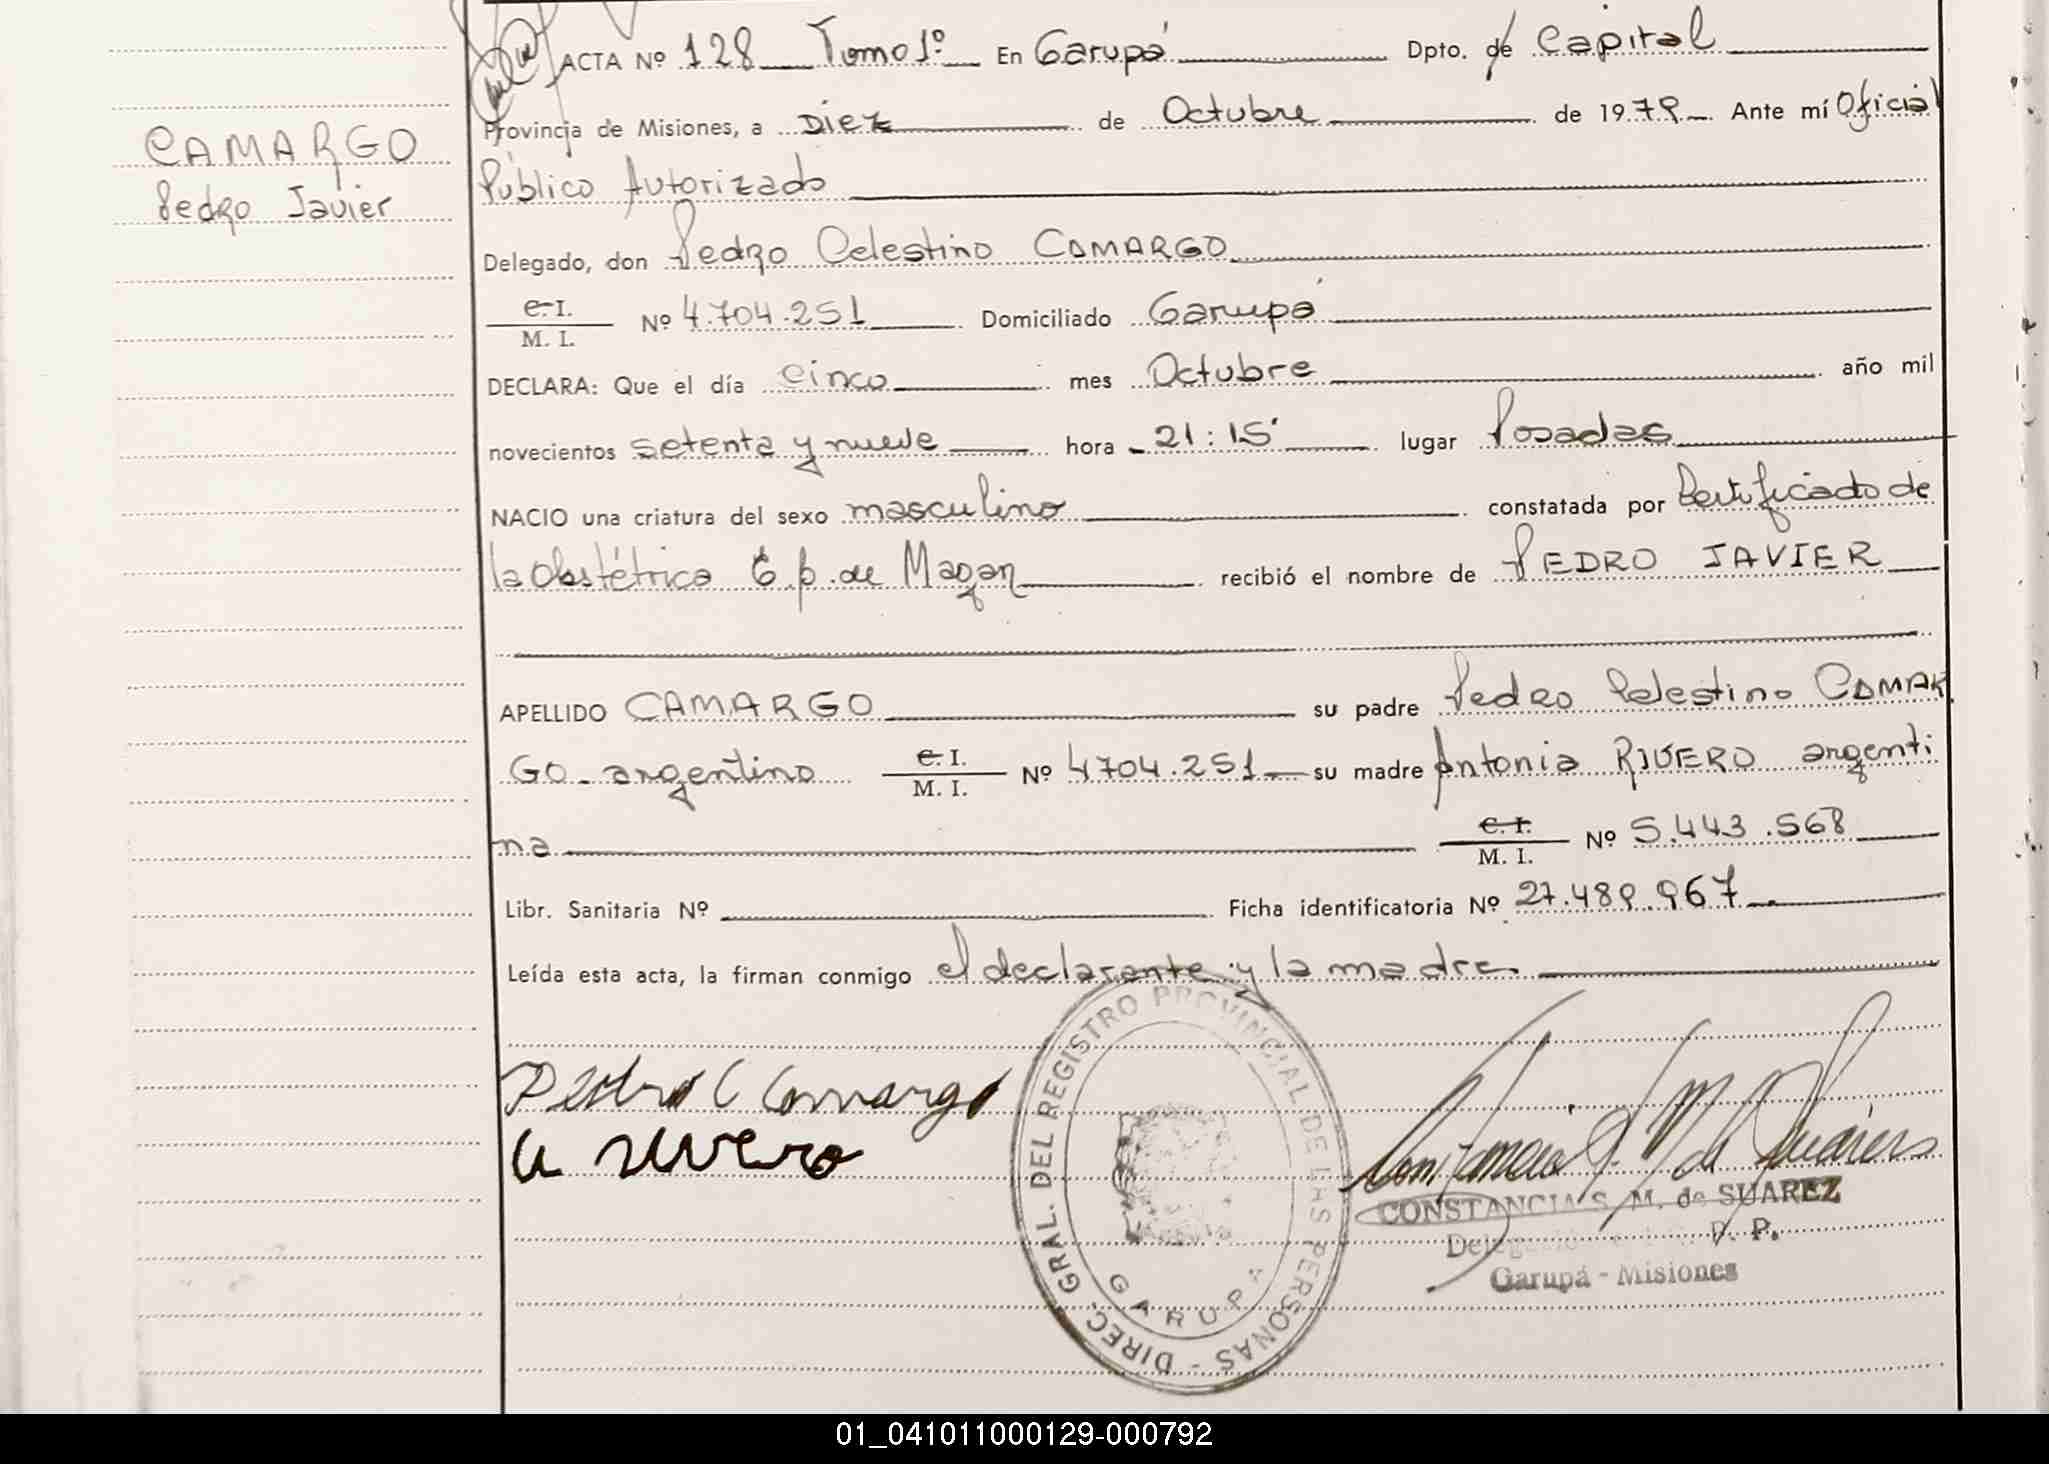 ACTA Nº 128 Tomo 1º En Garupá Dpto. de Capital
Provincia de Misiones, a Diez de Octubre de 1979 Ante mí Oficial
CAMARGO
Pedro Javier
Público Autorizado
Delegado, don Pedro Celestino CAMARGO
C. I.
M. I.
Nº 4.704.251 Domiciliado Garupá
DECLARA: Que el día cinco mes Octubre año mil
novecientos setenta y nueve hora 21:15' lugar Posadas
NACIO una criatura del sexo masculino constatada por Certificado de
la Obstétrica G. p. de Magan recibió el nombre de PEDRO JAVIER
APELLIDO CAMARGO su padre Pedro Celestino CAMAR
GO argentino C. I.
M. I.
Nº 4704.251 su madre Antonia RIVERO argenti
na C. I.
M. I.
Nº 5.443.568
Libr. Sanitaria Nº Ficha identificatoria Nº 27.489.967
Leída esta acta, la firman conmigo el declarante y la madre.
Pedro C Camargo
A Rivero
DIREC. GRAL. DEL REGISTRO PROVINCIAL DE LAS PERSONAS -
GARUPA
CONSTANCIA S. M. de SUAREZ
P. P.
Garupá - Misiones
01_041011000129-000792